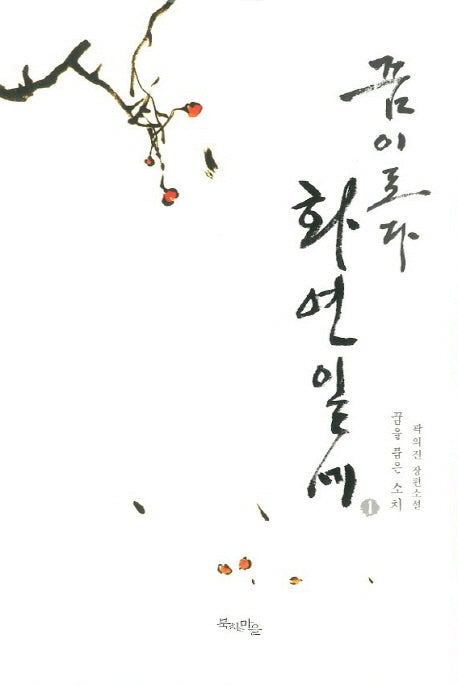 꿈이로다
화연일세
곽의진 장편소설
꿈을 품은 소치
1
북치는마을